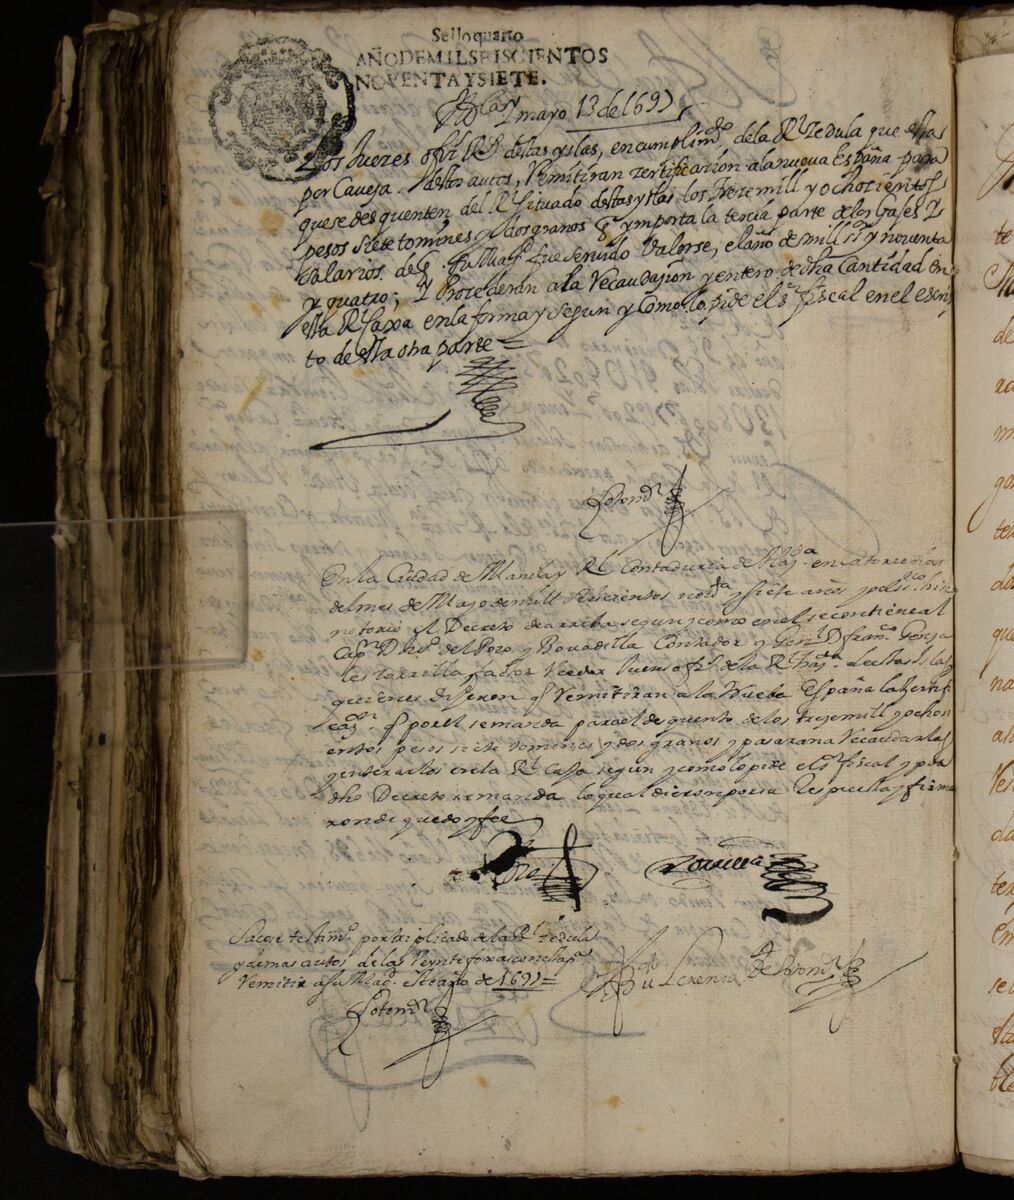 Sello quarto
AÑO DE MIL SEISCIENTOS
NOVENTA Y SIETE.
mayo 13 de 1697
Los Juezes ofiz Rs destas yslas, en cumplimto de la Rl zedula que esta
por Caveza destos autos, Remitiran zertificazion a la nueva España para
que se desquenten del Rl Situado destas yslas los treze mill y ochozientos
pesos siete tomines y dos granos q ymporta la tercia parte de los Gajes y
Salarios de q. su Magd fue servido Valerse, el año de mill y noventa
y quatro; y Procederan a la Recaudazion y entero de dha Cantidad en
esta Rl Caxa en la forma y segun y Como lo pide el sr fiscal en el escri
to de esta otra parte =
En la Ciudad de Manila y Rl Contaduria de Magd en catorce dias
del mes de Mayo de mill seiscientos nota y siete años yo el hize
notorio el Decreto de arriba segun y como en el se contiene al
Capn D. del Pozo y Bovadilla Contador y Genl D franco Gonza
les torrilla factor Veedor Juezes ofs de la Rl hazda destas Yslas
quienes dixeron q Remitiran a la Nueba España la zertifi
cazn q por el se manda para el desquento de los treze mill y ochosi
entos pesos siete tomines y dos granos y pasaran a recaudarlas
y enterarlos en la Rl Caxa segun y como lo pide el sr fiscal y por
dho Decreto se manda lo qual dieron por su Respuesta y firma
ron de que doy fee
Sacose testimo por triplicado de la Rl zedula
y demas autos de las
Remitir a su Magd este año de 1697 =